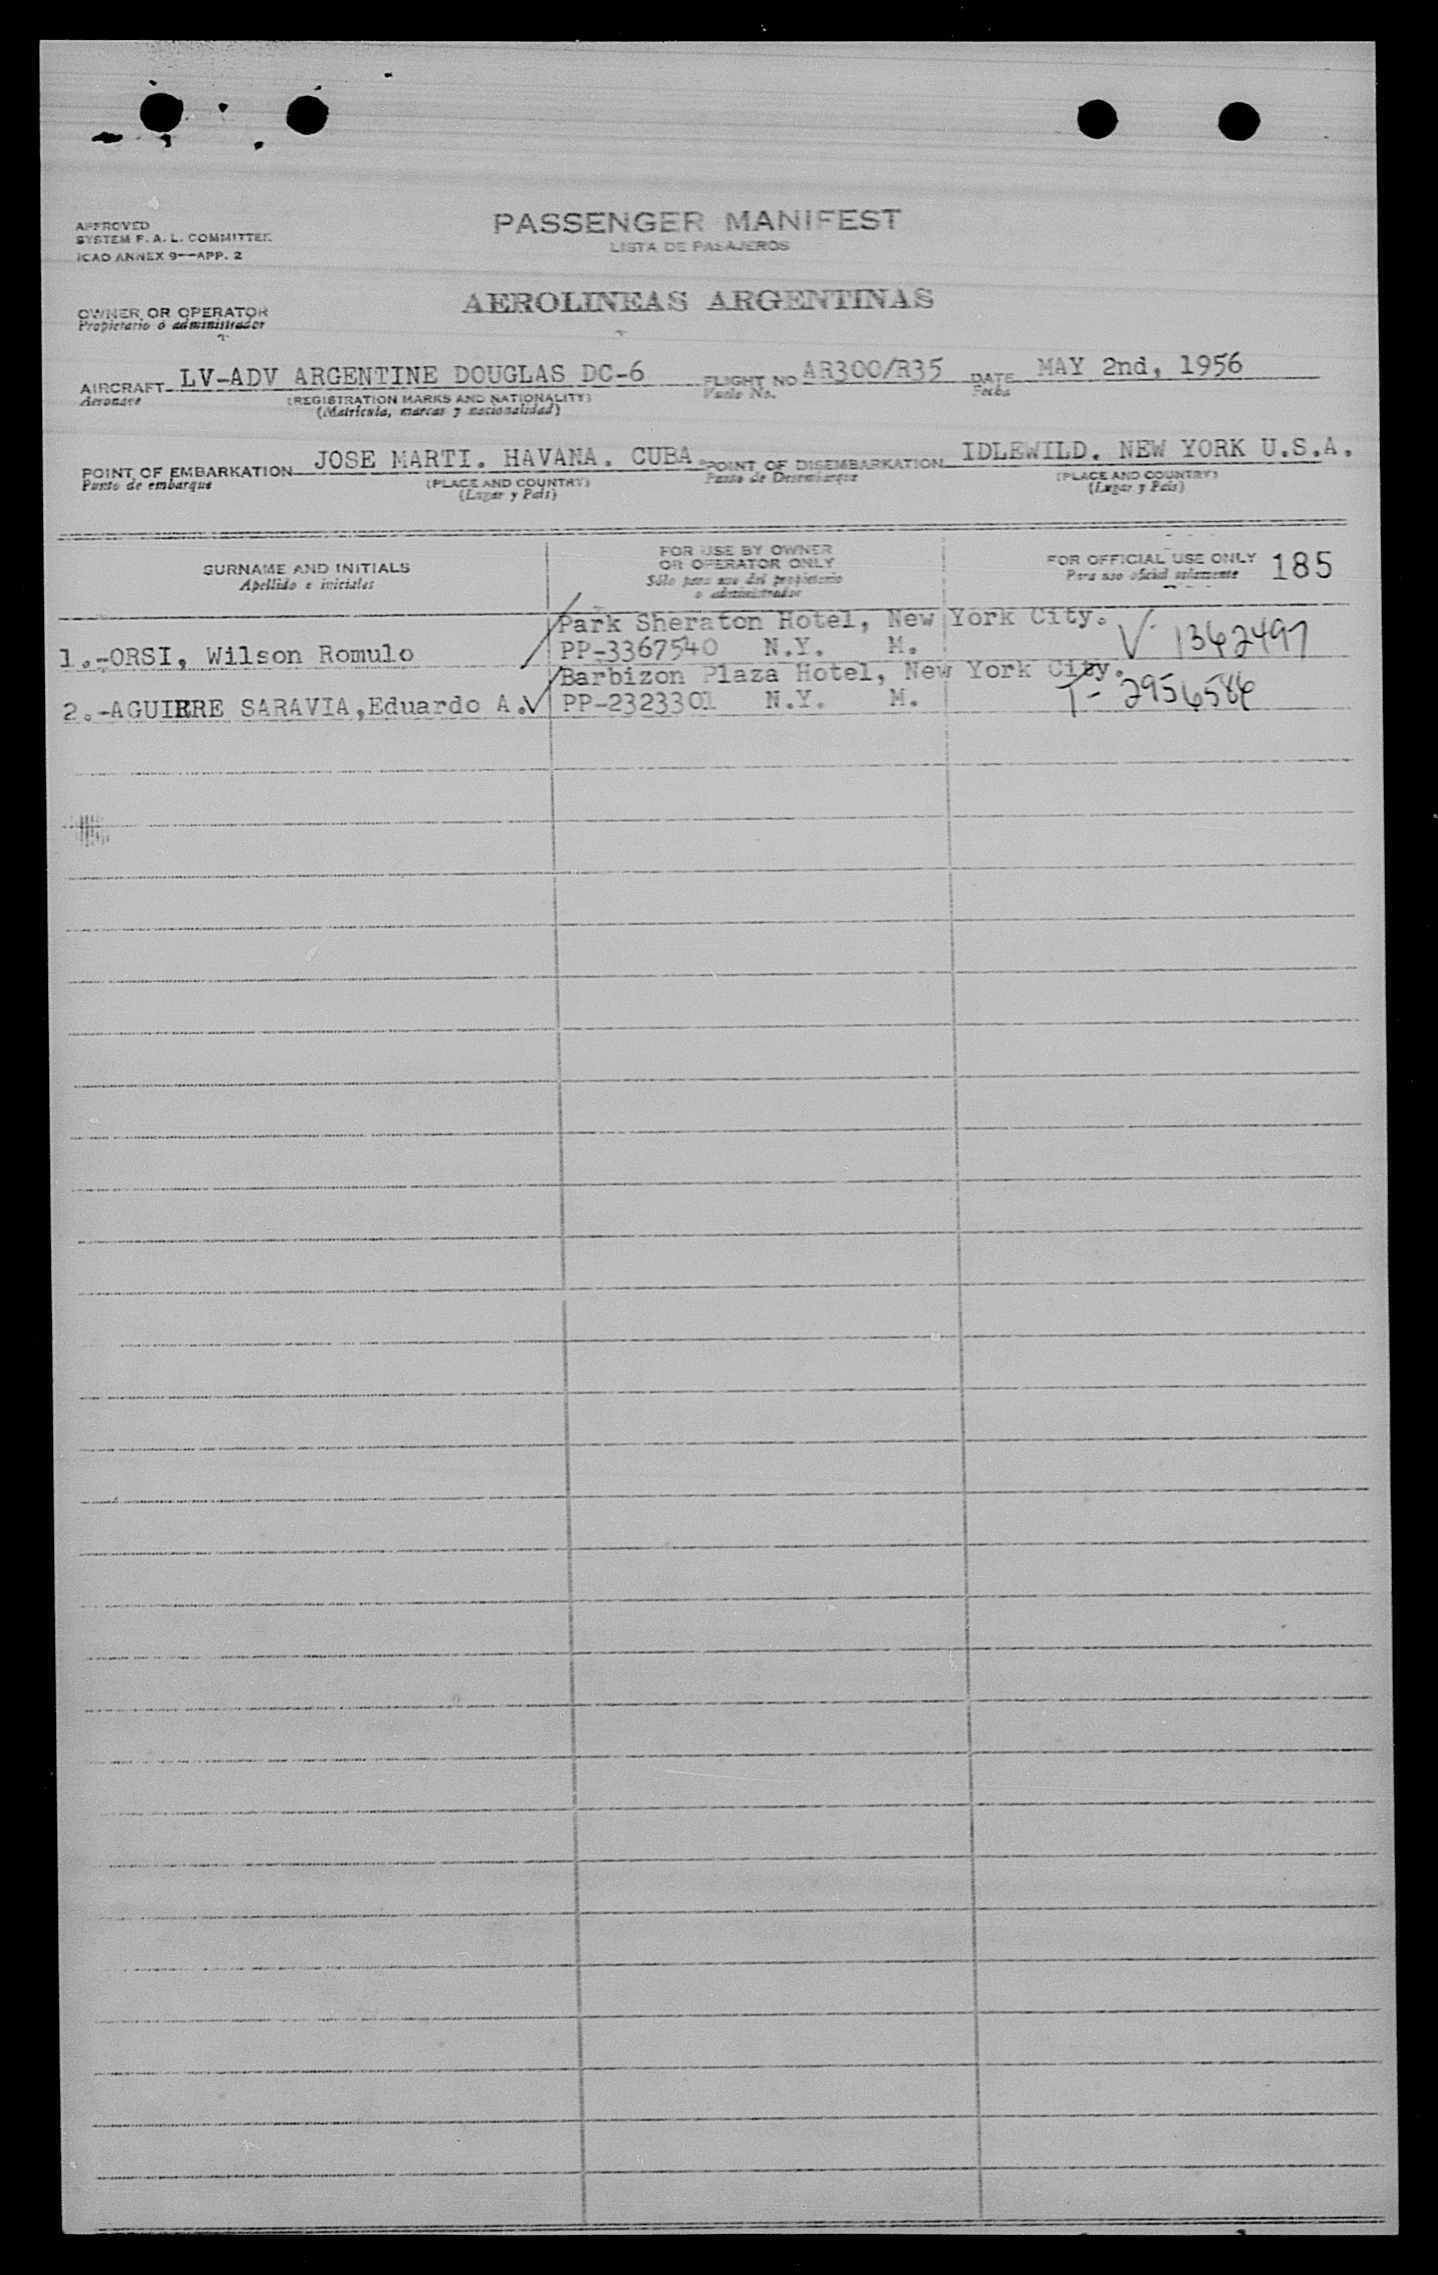 APPROVED
SYSTEM F. A. L. COMMITTEE
ICAO ANNEX 9--APP. 2
PASSENGER MANIFEST
LISTA DE PASAJEROS
OWNER OR OPERATOR
Propietario ó administrador
AEROLINEAS ARGENTINAS
AIRCRAFT LV-ADV ARGENTINE DOUGLAS DC-6 FLIGHT NO AR300/R35 DATE MAY 2nd, 1956
Aeronave (REGISTRATION MARKS AND NATIONALITY) Vuelo No. Fecha
(Matrícula, marcas y nacionalidad)
POINT OF EMBARKATION JOSE MARTI. HAVANA. CUBA. POINT OF DISEMBARKATION IDLEWILD. NEW YORK U.S.A.
Punto de embarque (PLACE AND COUNTRY) Punto de Desembarque (PLACE AND COUNTRY)
(Lugar y País) (Lugar y País)
SURNAME AND INITIALS
Apellido e iniciales
FOR USE BY OWNER
OR OPERATOR ONLY
Sólo para uso del propietario
o administrador
FOR OFFICIAL USE ONLY 185
Para uso oficial solamente
Park Sheraton Hotel, New York City.
1.-ORSI, Wilson Romulo PP-3367540 N.Y. M. V- 1362497
Barbizon Plaza Hotel, New York City.
2.-AGUIRRE SARAVIA,Eduardo A. PP-2323301 N.Y. M. T- 2956586